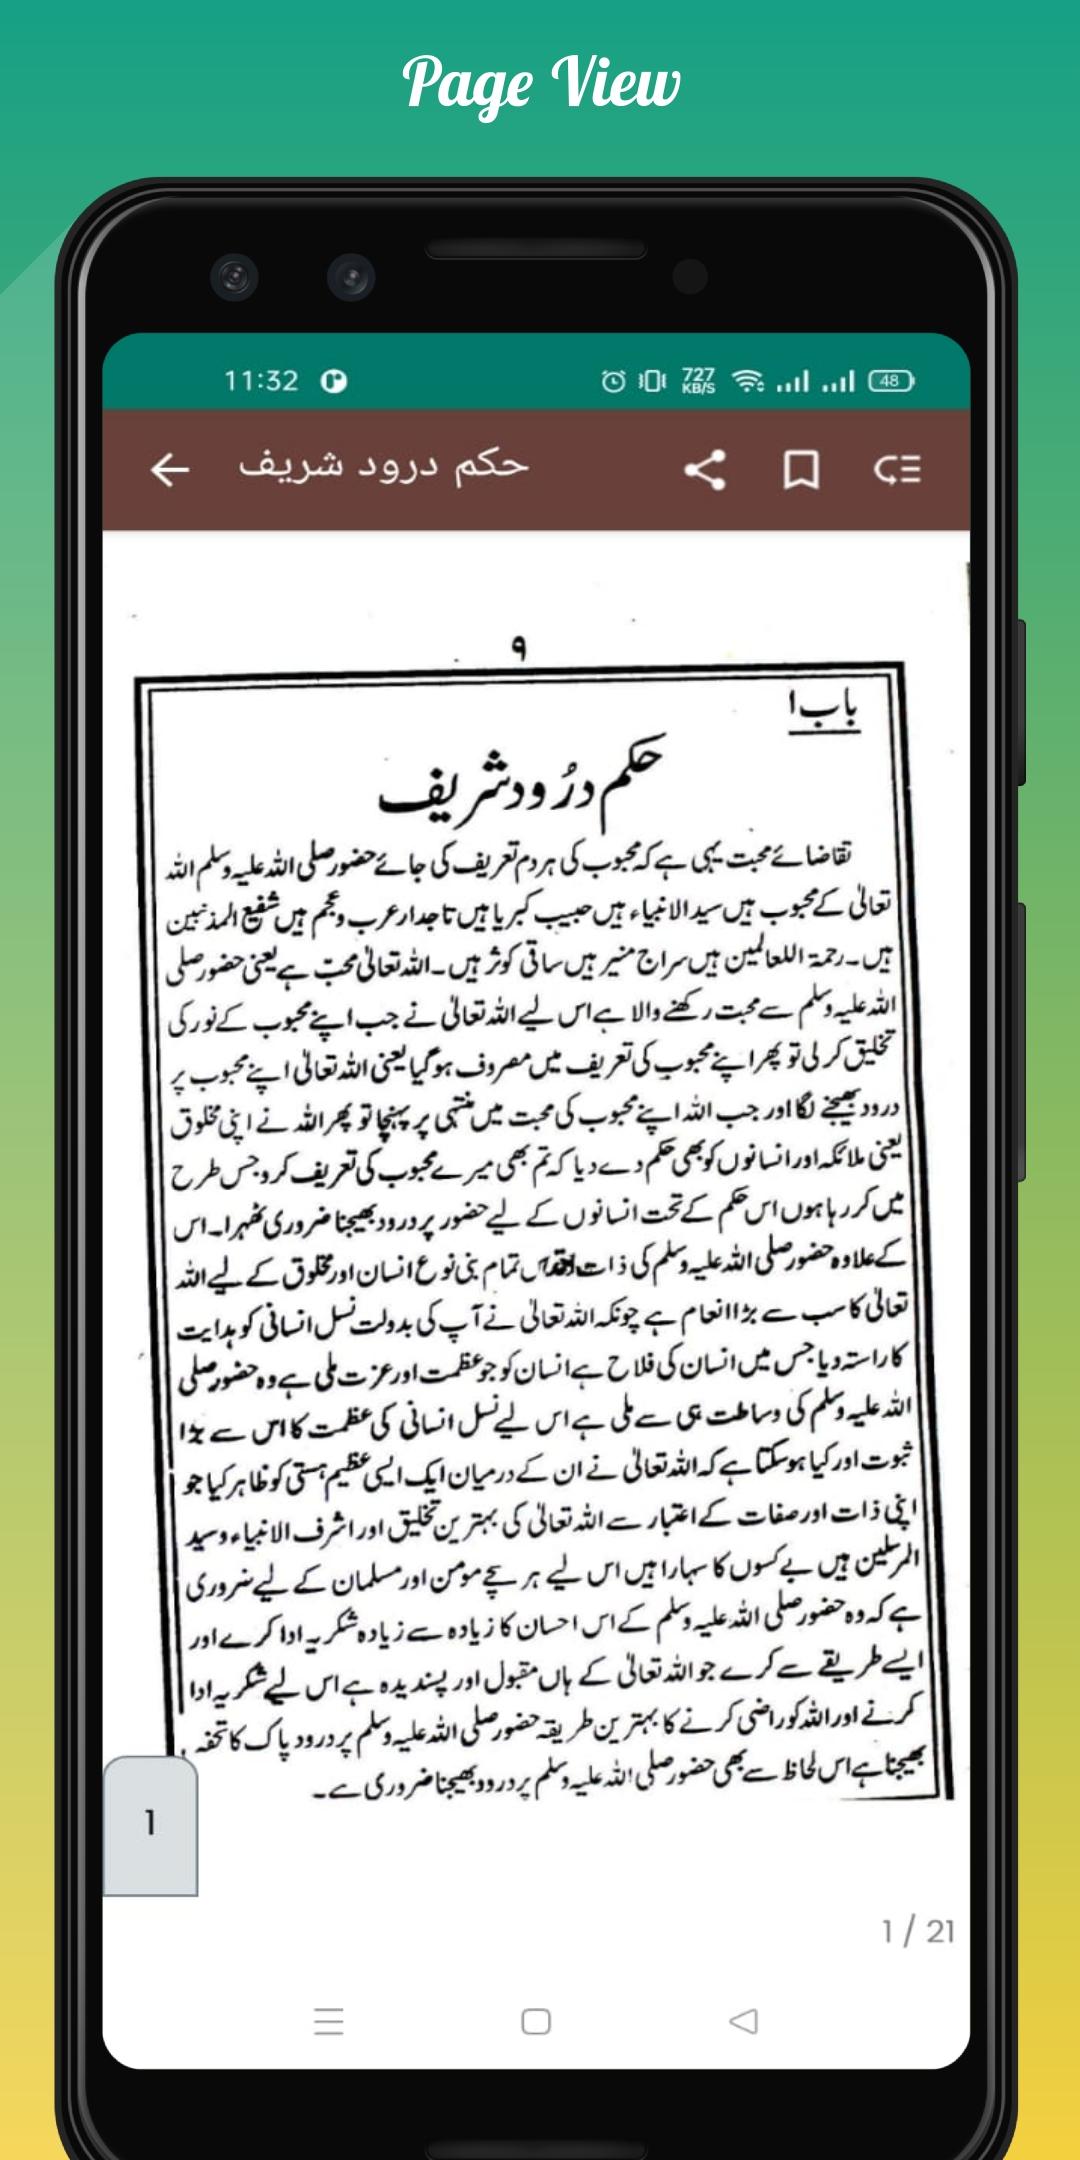 Page View
11:32
727
KB/S
48
حکم درود شریف
۹
باب ۱
حکم درُود شریف
تقاضائے محبت یہی ہے کہ محبوب کی ہر دم تعریف کی جائے حضور صلی اللہ علیہ وسلم اللہ
تعالیٰ کے محبوب ہیں سید الانبیاء ہیں حبیب کبریا ہیں تاجدار عرب و عجم ہیں شفیع المذنبین
ہیں۔ رحمۃ اللعالمین ہیں سراج منیر ہیں ساقی کوثر ہیں۔ اللہ تعالیٰ محب ہے یعنی حضور صلی
اللہ علیہ وسلم سے محبت رکھنے والا ہے اس لیے اللہ تعالیٰ نے جب اپنے محبوب کے نور کی
تخلیق کر لی تو پھر اپنے محبوب کی تعریف میں مصروف ہو گیا یعنی اللہ تعالیٰ اپنے محبوب پر
درود بھیجنے لگا اور جب اللہ اپنے محبوب کی محبت میں منتہی پر پہنچا تو پھر اللہ نے اپنی مخلوق
یعنی ملائکہ اور انسانوں کو بھی حکم دے دیا کہ تم بھی میرے محبوب کی تعریف کرو جس طرح
میں کر رہا ہوں اس حکم کے تحت انسانوں کے لیے حضور پر درود بھیجنا ضروری ٹھہرا۔ اس
کے علاوہ حضور صلی اللہ علیہ وسلم کی ذات تمام بنی نوع انسان اور مخلوق کے لیے اللہ
تعالیٰ کا سب سے بڑا انعام ہے چونکہ اللہ تعالیٰ نے آپ کی بدولت نسل انسانی کو ہدایت
کا راستہ دیا جس میں انسان کی فلاح ہے انسان کو جو عظمت اور عزت ملی ہے وہ حضور صلی
اللہ علیہ وسلم کی وساطت ہی سے ملی ہے اس لیے نسل انسانی کی عظمت کا اس سے بڑا
ثبوت اور کیا ہو سکتا ہے کہ اللہ تعالیٰ نے ان کے درمیان ایک ایسی عظیم ہستی کو ظاہر کیا جو
اپنی ذات اور صفات کے اعتبار سے اللہ تعالیٰ کی بہترین تخلیق اور اشرف الانبیاء و سید
المرسلین ہیں بے کسوں کا سہارا ہیں اس لیے ہر سچے مومن اور مسلمان کے لیے ضروری
ہے کہ وہ حضور صلی اللہ علیہ وسلم کے اس احسان کا زیادہ سے زیادہ شکریہ ادا کرے اور
ایسے طریقے سے کرے جو اللہ تعالیٰ کے ہاں مقبول اور پسندیدہ ہے اس لیے شکریہ ادا
کرنے اور اللہ کو راضی کرنے کا بہترین طریقہ حضور صلی اللہ علیہ وسلم پر درود پاک کا تحفہ
بھیجنا ہے اس لحاظ سے بھی حضور صلی اللہ علیہ وسلم پر درود بھیجنا ضروری ہے۔
1
1 / 21